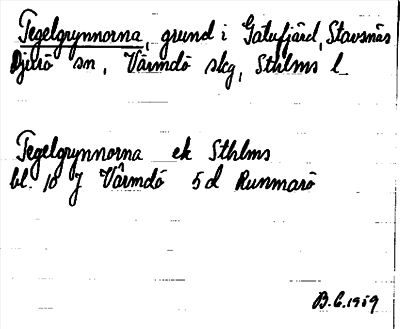 Tegelgrynnorna, grund i Gatufjärd, Stavsnäs
Djurö sn, Värmdö skg, Sthlms l
Tegelgrynnorna ek Sthlms
bl. 10 J Värmdö 5d Runmarö
B.G. 1959